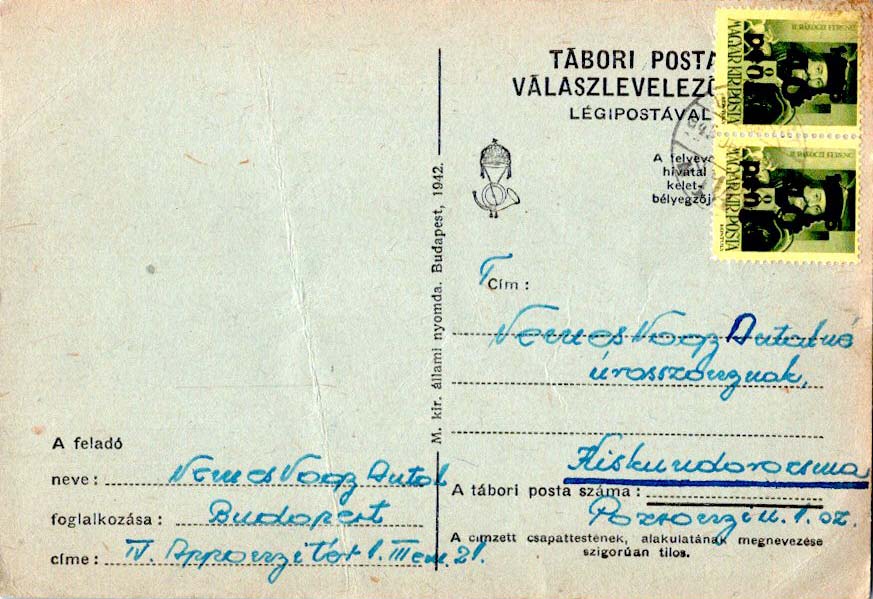 TÁBORI POSTA
VÁLASZLEVELEZŐ
LÉGIPOSTÁVAL
A felvevő
hivatal
kelet-
bélyegzője
MAGYAR KIR. POSTA
MAGYAR KIR. POSTA
M. kir. állami nyomda. Budapest, 1942.
T
Cím :
Nemes Nagy Antalné
úrasszonynak,
Kiskundorozsma
A tábori posta száma :
Pozsonyi u. 1. sz.
A címzett csapattestének, alakulatának megnevezése
szigorúan tilos.
A feladó
neve : Nemes Nagy Antal
foglalkozása : Budapest
címe : IV. Apponyi tér 1. III em. 21.